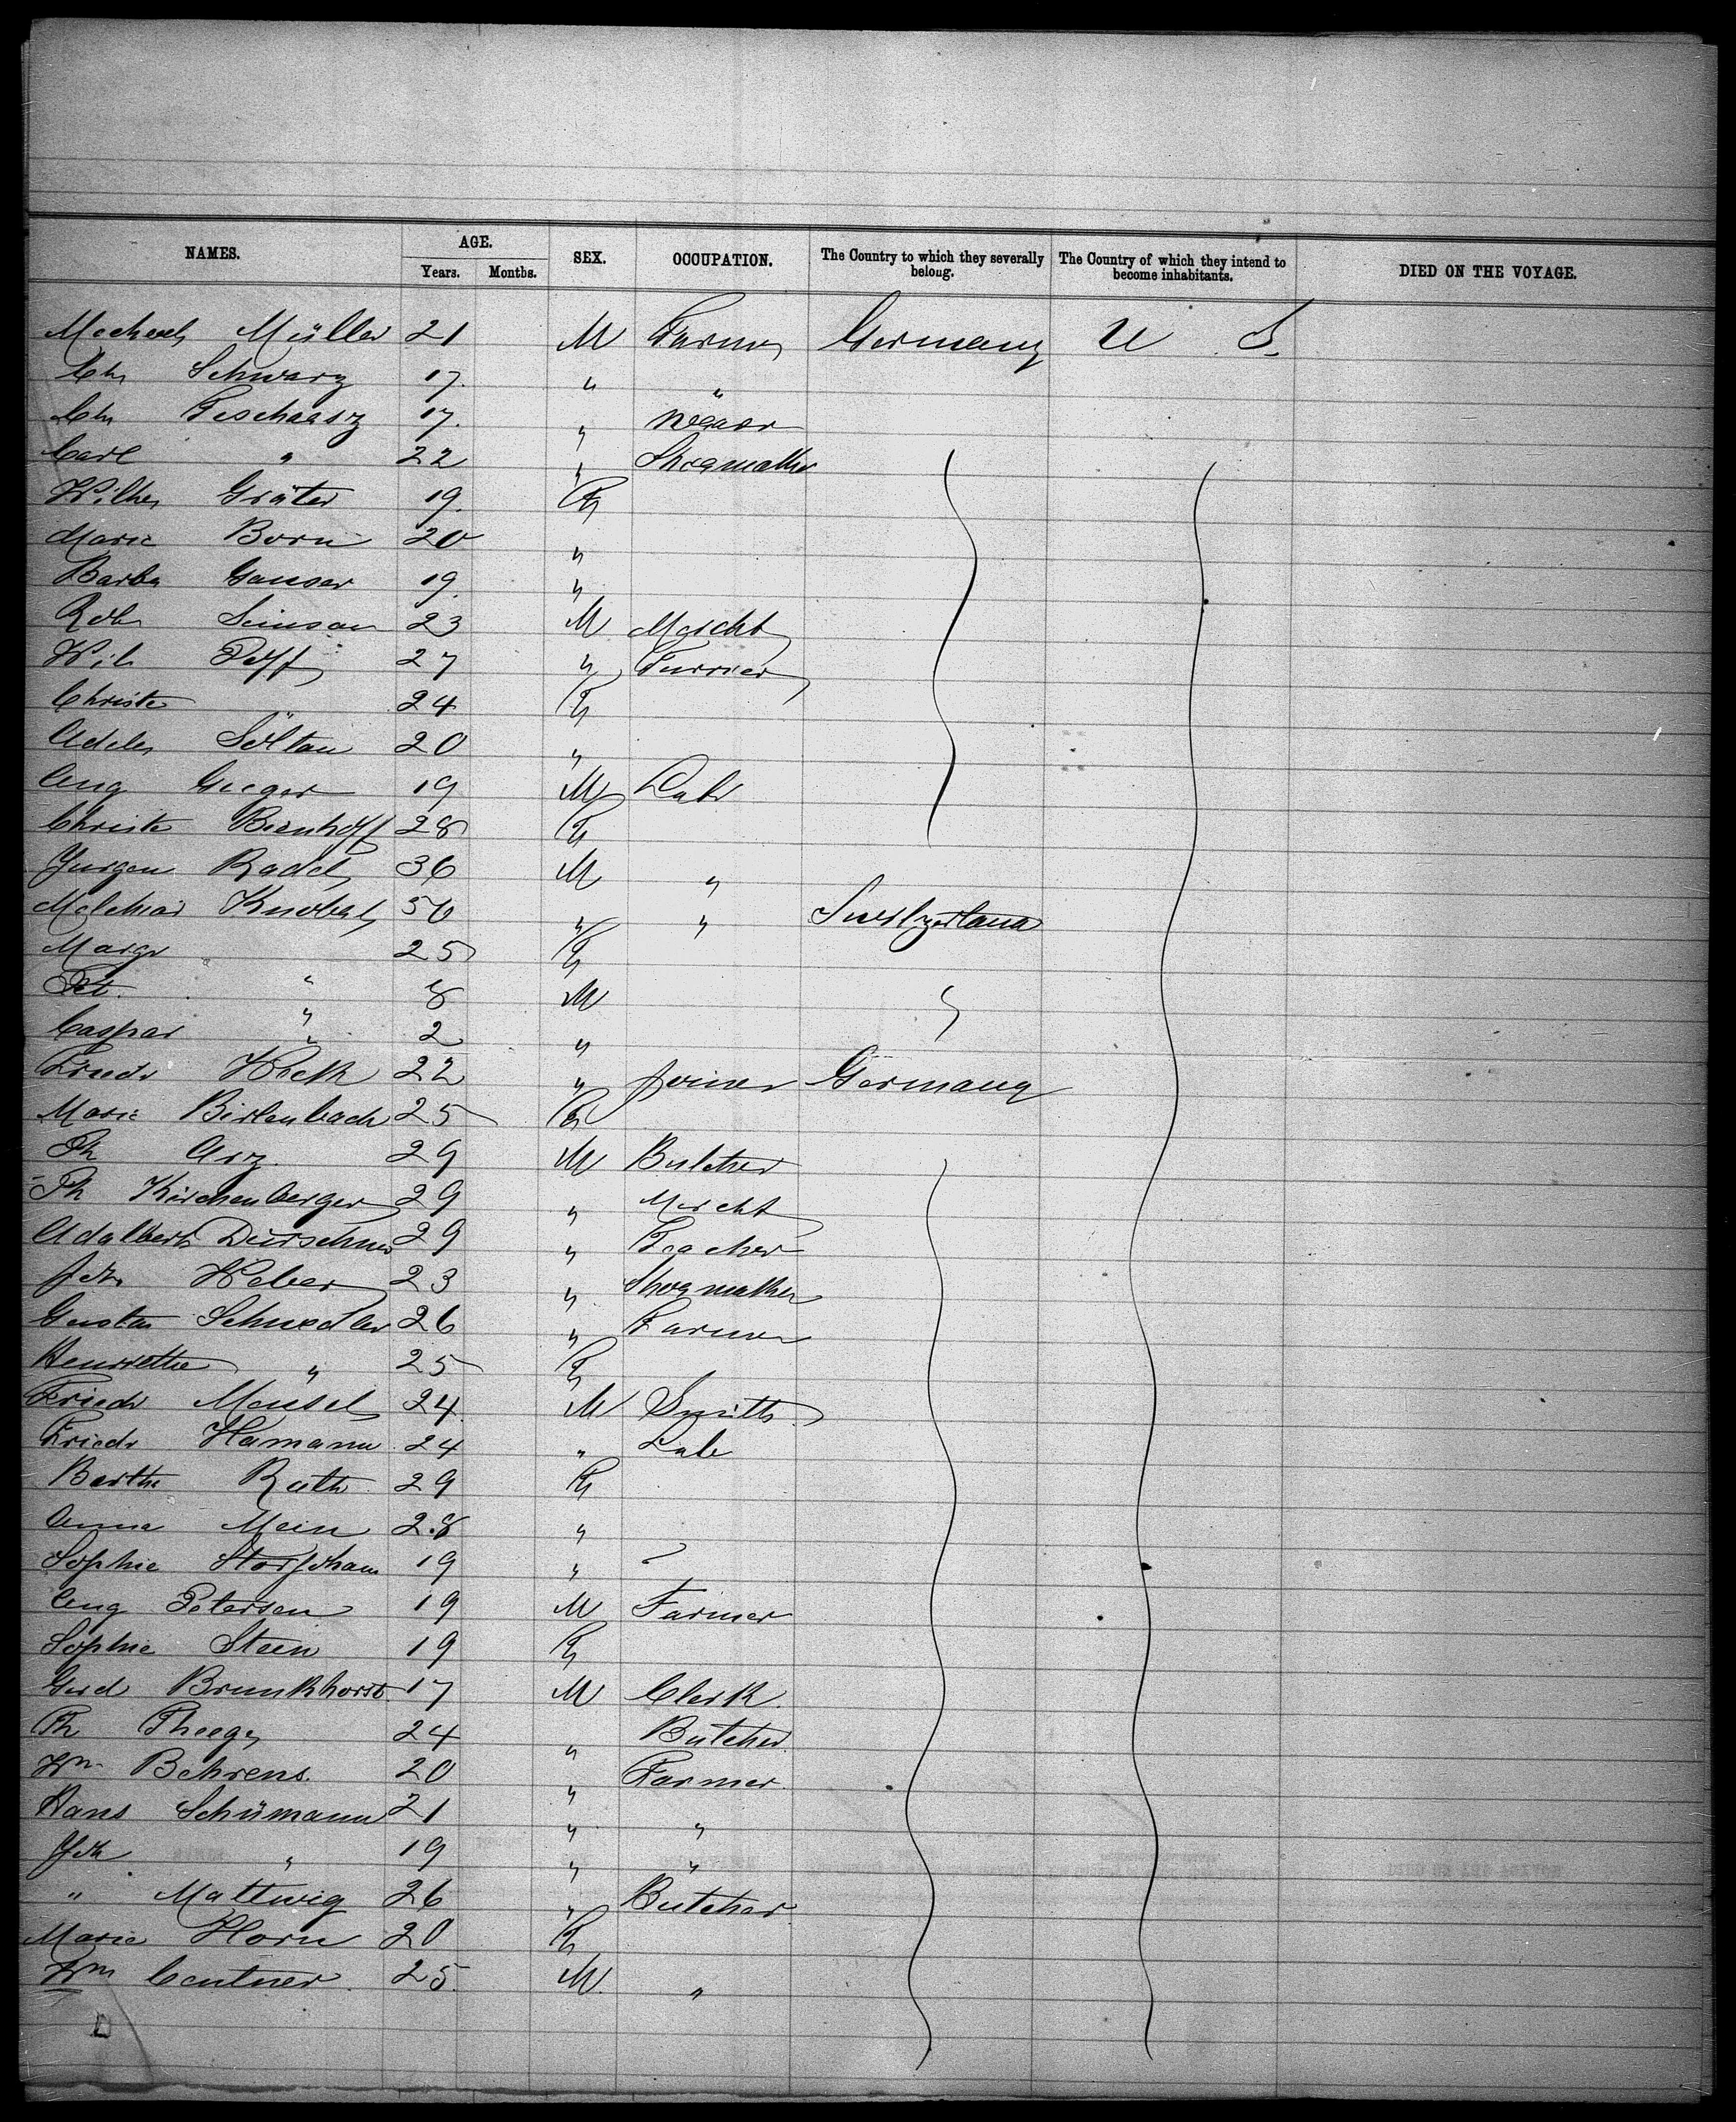 NAMES. AGE. SEX. OCCUPATION. The Country to which they severally belong. The Country of which they intend to become inhabitants. DIED ON THE VOYAGE.
Years. Months.
Müller 21 M Farmer Germany U S
Chr Schwarz 17 " "
Chr 17 "
Carl " 22 " Shoemaker
Wilhe Gräter 19 F
Marie Born 20 "
Barba Ganser 19 "
Rob Simson 23 M Mercht
Wilh 27 " Furrier
Christe 24 F
Adele Söltau 20 "
Aug Geeger 19 M Labr
Christe Bienhoff 28 F
Jurgen Radel 36 M "
Melchior Knobel 50 " " Switzerland
Margr 25 F
Pet. " 8 M
Caspar " 2 "
Friedr Hock 22 " Joiner Germany
Marie Birlenbach 25 F
Ph Arz. 29 M Butcher
Ph Kirchenberger 29 " Mercht
Adalbert Durschner 29 " Teacher
Joh Weber 23 " Shoemaker
Gustav Schwedler 26 " Farmer
Henriette " 25 F
Friedr Mensel 24 M Smith
Friedr Hamann 24 " Lab
Berthe Rath 29 F
Anna Mein 28 "
Sophie 19 "
Aug Petersen 19 M Farmer
Sophie Steen 19 F
Gerd Brunkhorst 17 M Clerk
Th Theege 24 " Butcher
Wm Behrens. 20 " Farmer
Hans Schümann 21 " "
Joh " 19 " "
" Mattwig 26 " Butcher
Marie Horn 20 F
Wm Centner 25 M "